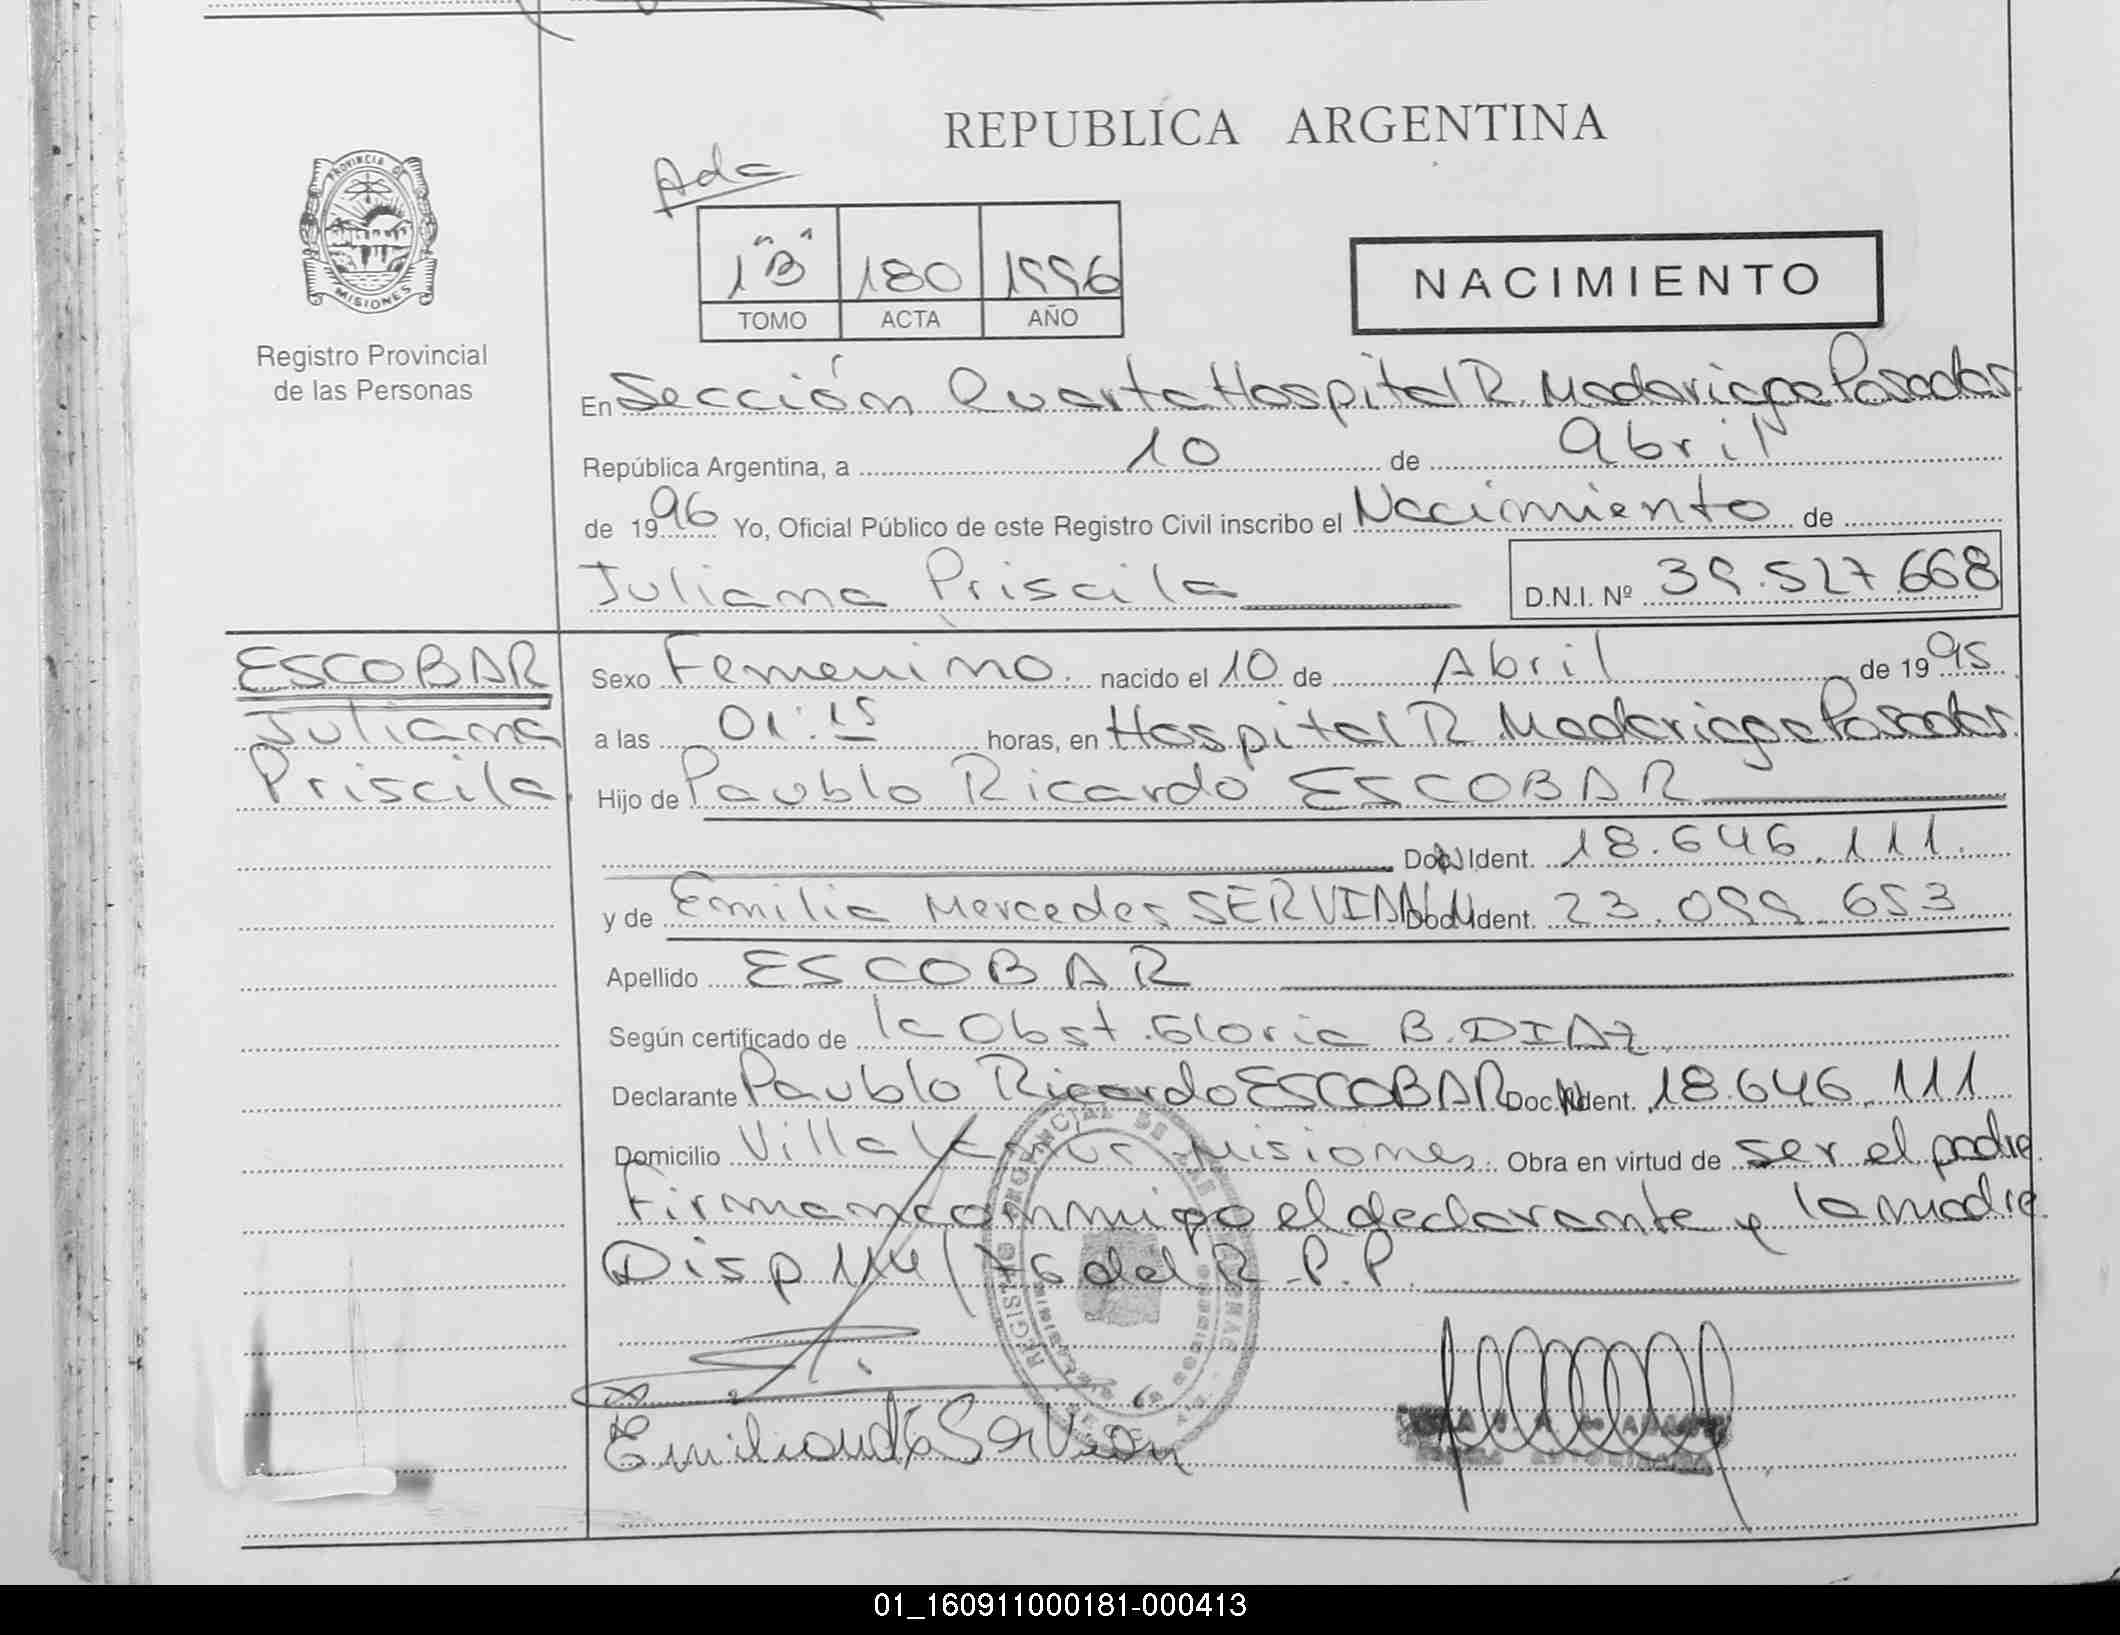 REPUBLICA ARGENTINA
PROVINCIA DE
MISIONES
Registro Provincial
de las Personas
Ada
1 "B" 180 1996
TOMO ACTA AÑO
NACIMIENTO
En Sección Cuarta Hospital R. Madariaga Posadas
República Argentina, a 10 de Abril
de 1996 Yo, Oficial Público de este Registro Civil inscribo el Nacimiento de
Juliana Priscila D.N.I. Nº 39.527.668
ESCOBAR
Juliana
Priscila
Sexo Femenino. nacido el 10 de Abril de 1995
a las 01:15 horas, en Hospital R. Madariaga Posadas.
Hijo de Paublo Ricardo ESCOBAR
Doc. Ident. 18.646.111.
y de Emilia Mercedes SERVIAN Doc. Ident. 23.099.653
Apellido ESCOBAR
Según certificado de la Obst. Gloria B. DIAZ
Declarante Paublo Ricardo ESCOBAR Doc. Ident. 18.646.111
Domicilio Villa Misiones. Obra en virtud de ser el padre.
Firman conmigo el declarante y la madre.
Disp 114/76 del R.P.P.
Servián
01_160911000181-000413